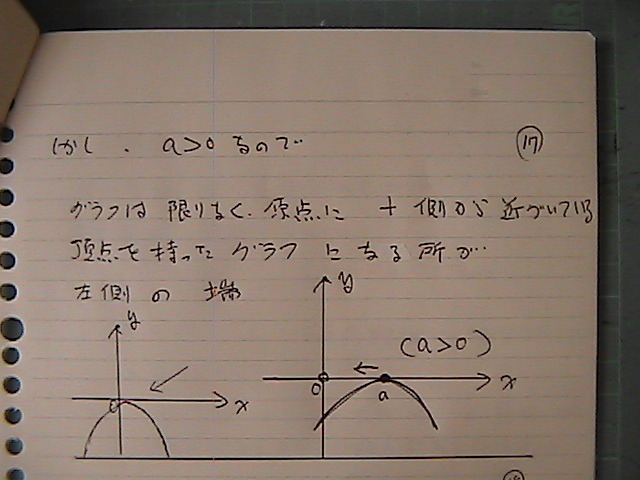 しかし、a>0なので
⑰
グラフは限りなく、原点に＋側から近づいている
頂点を持ったグラフになる所が…
左側の端
y
x
y
(a>0)
0
a
x